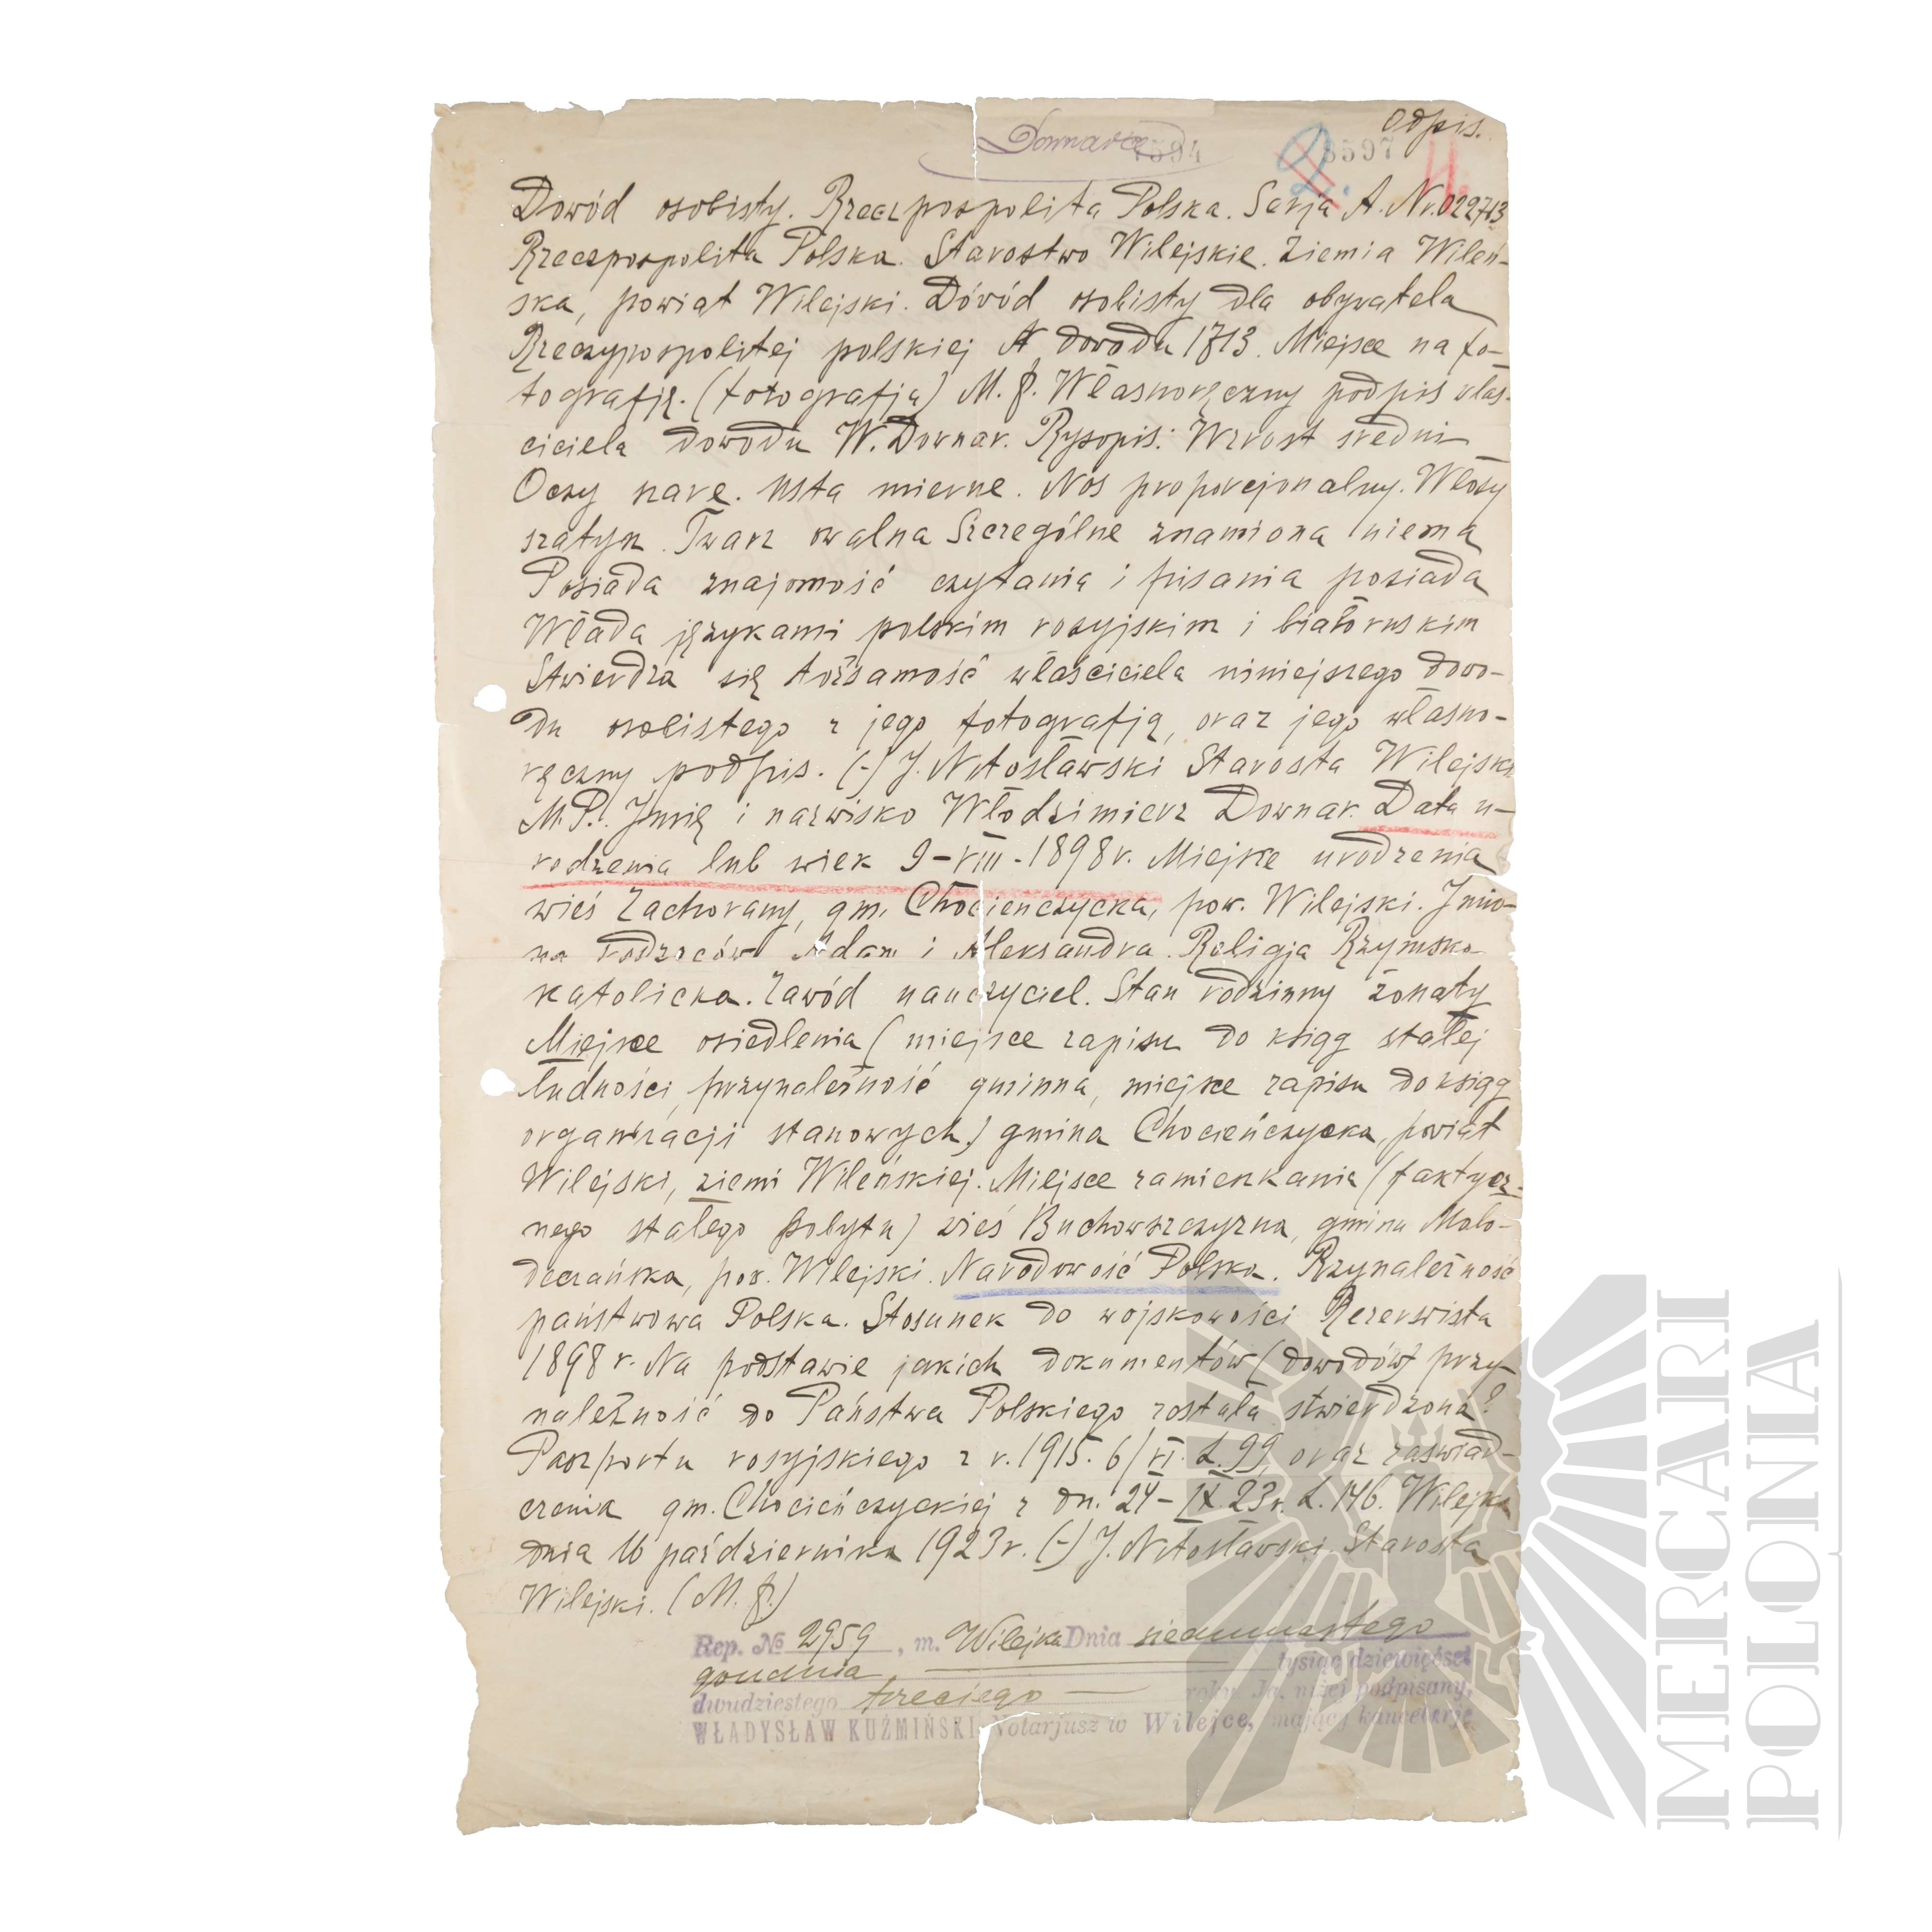 Odpis.
Downara
7594
8597
Dowód osobisty. Rzeczpospolita Polska. Serja A. Nr. 022713
Rzeczpospolita Polska. Starostwo Wilejskie. Ziemia Wileń-
ska, powiat Wilejski. Dówód osobisty dla obywatela
Rzeczypospolitej polskiej № dowodu 1713. Miejsce na fo-
tografję. (fotografja) M. p. Własnoręczny podpis właś-
ciciela dowodu W. Downar. Rysopis: Wzrost średni
Oczy szare. Usta mierne. Nos proporcjonalny. Włosy
szatyn. Twarz owalna Szczególne znamiona niema
Posiada znajomość czytania i pisania posiada
Włada językami polskim rosyjskim i białoruskim
Stwierdza się tożsamość właściciela niniejszego dowo-
du osobistego z jego fotografją, oraz jego własno-
ręczny podpis. (-) J. Nitosławski Starosta Wilejski
M.P. Imię i nazwisko Włodzimierz Downar. Data u-
rodzenia lub wiek 9-VIII-1898 r. Miejsce urodzenia
wieś Zachorany, gm. Chocieńczycka, pow. Wilejski. Imio-
na rodziców Adam i Aleksandra. Religja Rzymsko-
katolicka. Zawód nauczyciel. Stan rodzinny żonaty
Miejsce osiedlenia (miejsce zapisu do ksiąg stałej
ludności, przynależność gminna, miejsce zapisu do ksiąg
organizacji stanowych) gmina Chocieńczycka, powiat
Wilejski, ziemi Wileńskiej. Miejsce zamieszkania (faktycz-
nego stałego pobytu) wieś Buchowszczyzna, gmina Moło-
deczańska, pow. Wilejski. Narodowość Polska. Przynależność
państwowa Polska. Stosunek do wojskowości Rezerwista
1898 r. Na podstawie jakich dokumentów (dowodów) przy-
należność do Państwa Polskiego została stwierdzona?
Paszportu rosyjskiego z r. 1915. 6/VI. L. 99, oraz zaświad-
czenia gm. Chocieńczyckiej z dn. 24-IX 23 r. L. 146. Wilejka
dnia 16 października 1923 r. (-) J. Nitosławski. Starosta
Wilejski. (M. p.)
Rep. № 2959, m. Wilejka Dnia siedemnastego
grudnia tysiąc dziewięćset
dwudziestego trzeciego roku Ja, niżej podpisany,
WŁADYSŁAW KUŹMIŃSKI, Notarjusz w Wilejce, mający kancelarję
MERCARI
POLONIA